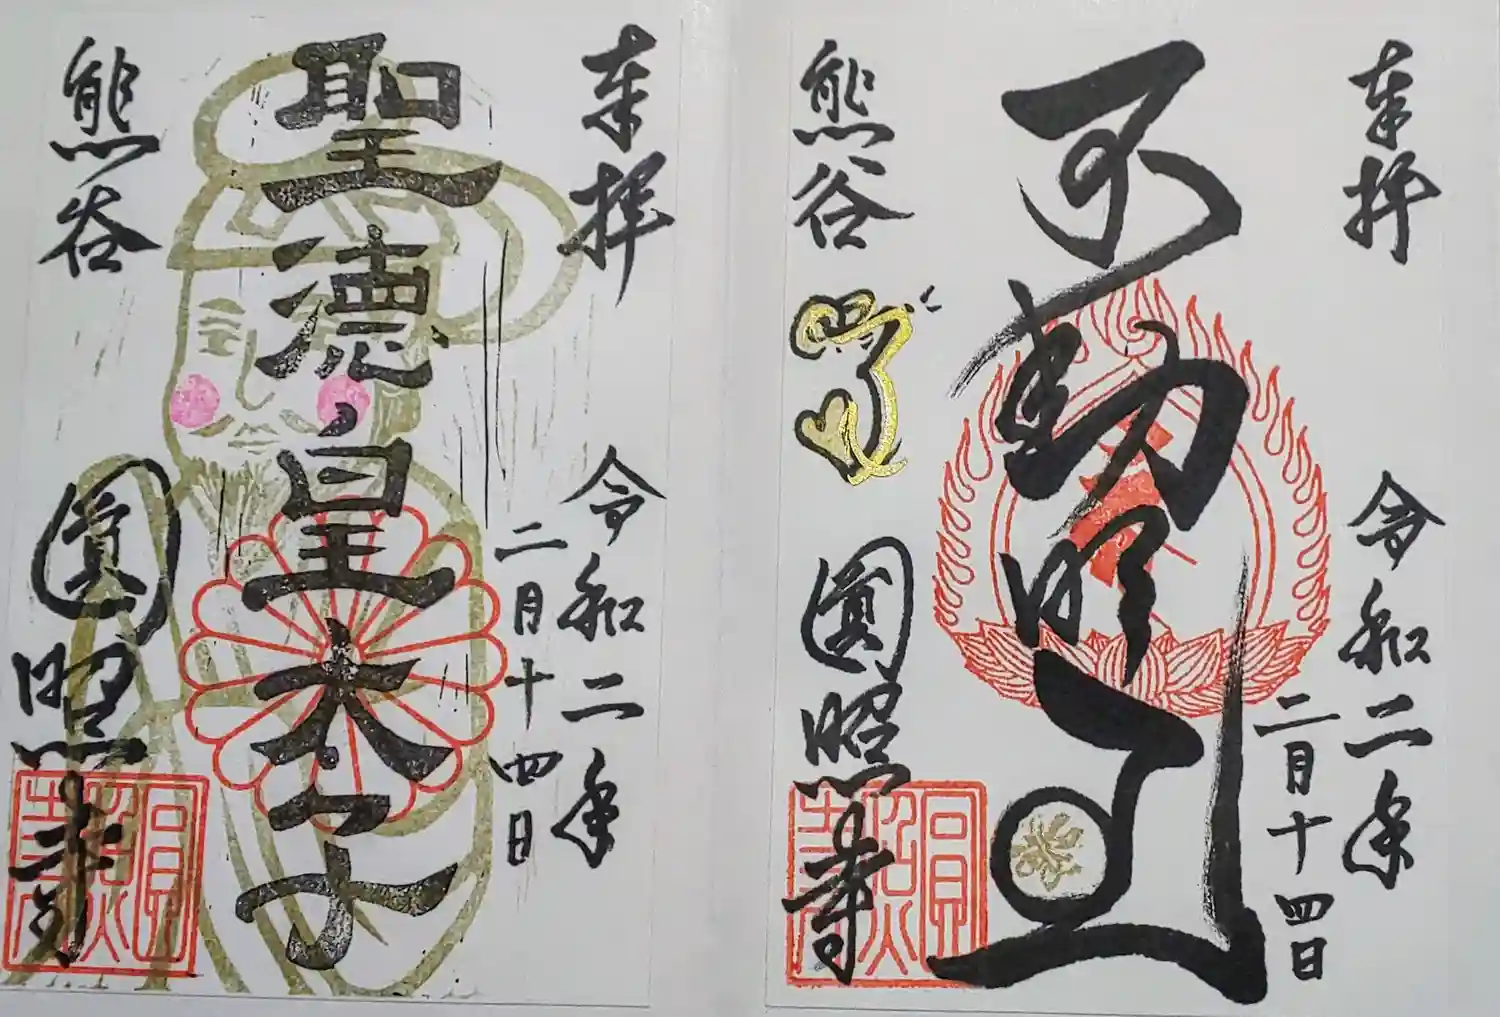 奉拝
不動明王
令和二年
二月十四日
熊谷
圓照寺
圓照寺
奉拝
聖徳皇太子
令和二年
二月十四日
熊谷
圓照寺
圓照寺